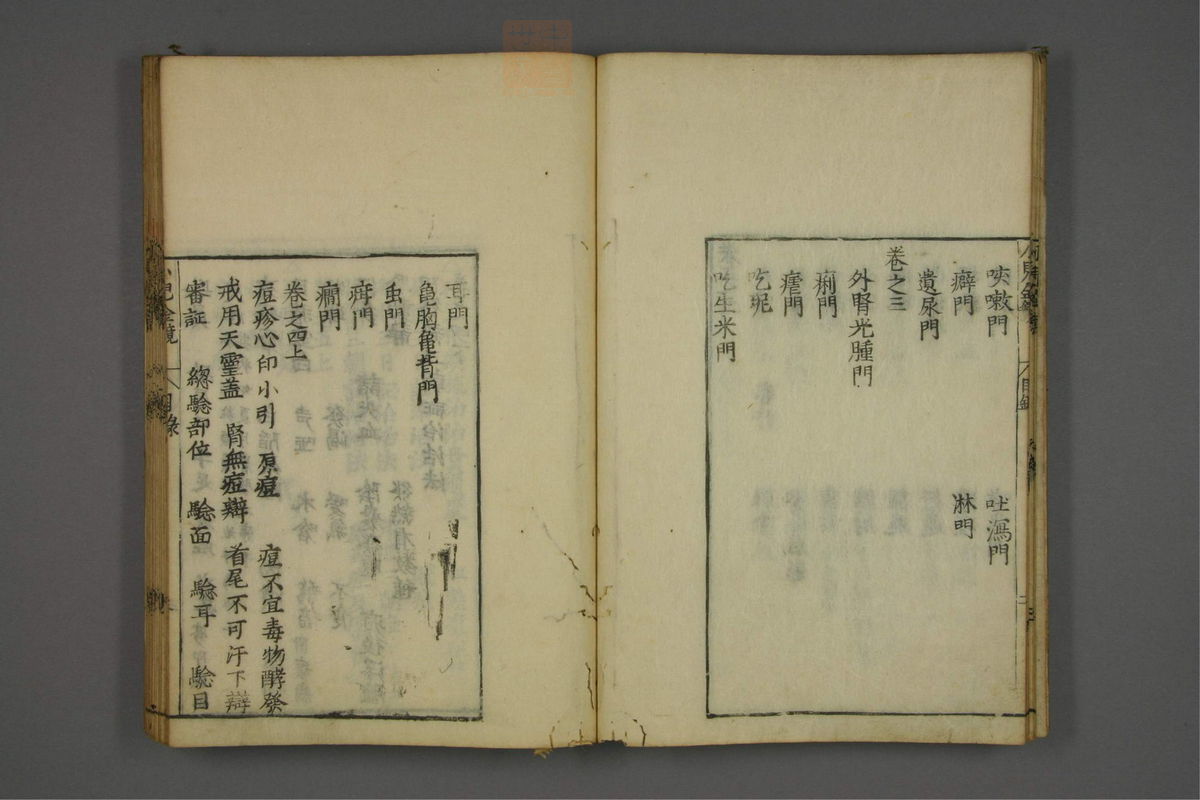 咳嗽門 吐瀉門
癖門 淋門
遺尿門
卷之三
外腎光腫門
痢門
瘧門
吃泥
吃生米門
耳門
龜胸龜背門
虫門
疳門
癇門
卷之四上
痘疹心印小引 原痘 痘不宜毒物酵發
戒用天靈蓋 腎無痘辯 首尾不可汗下辯
審証 總驗部位 驗面 驗耳 驗目
目錄